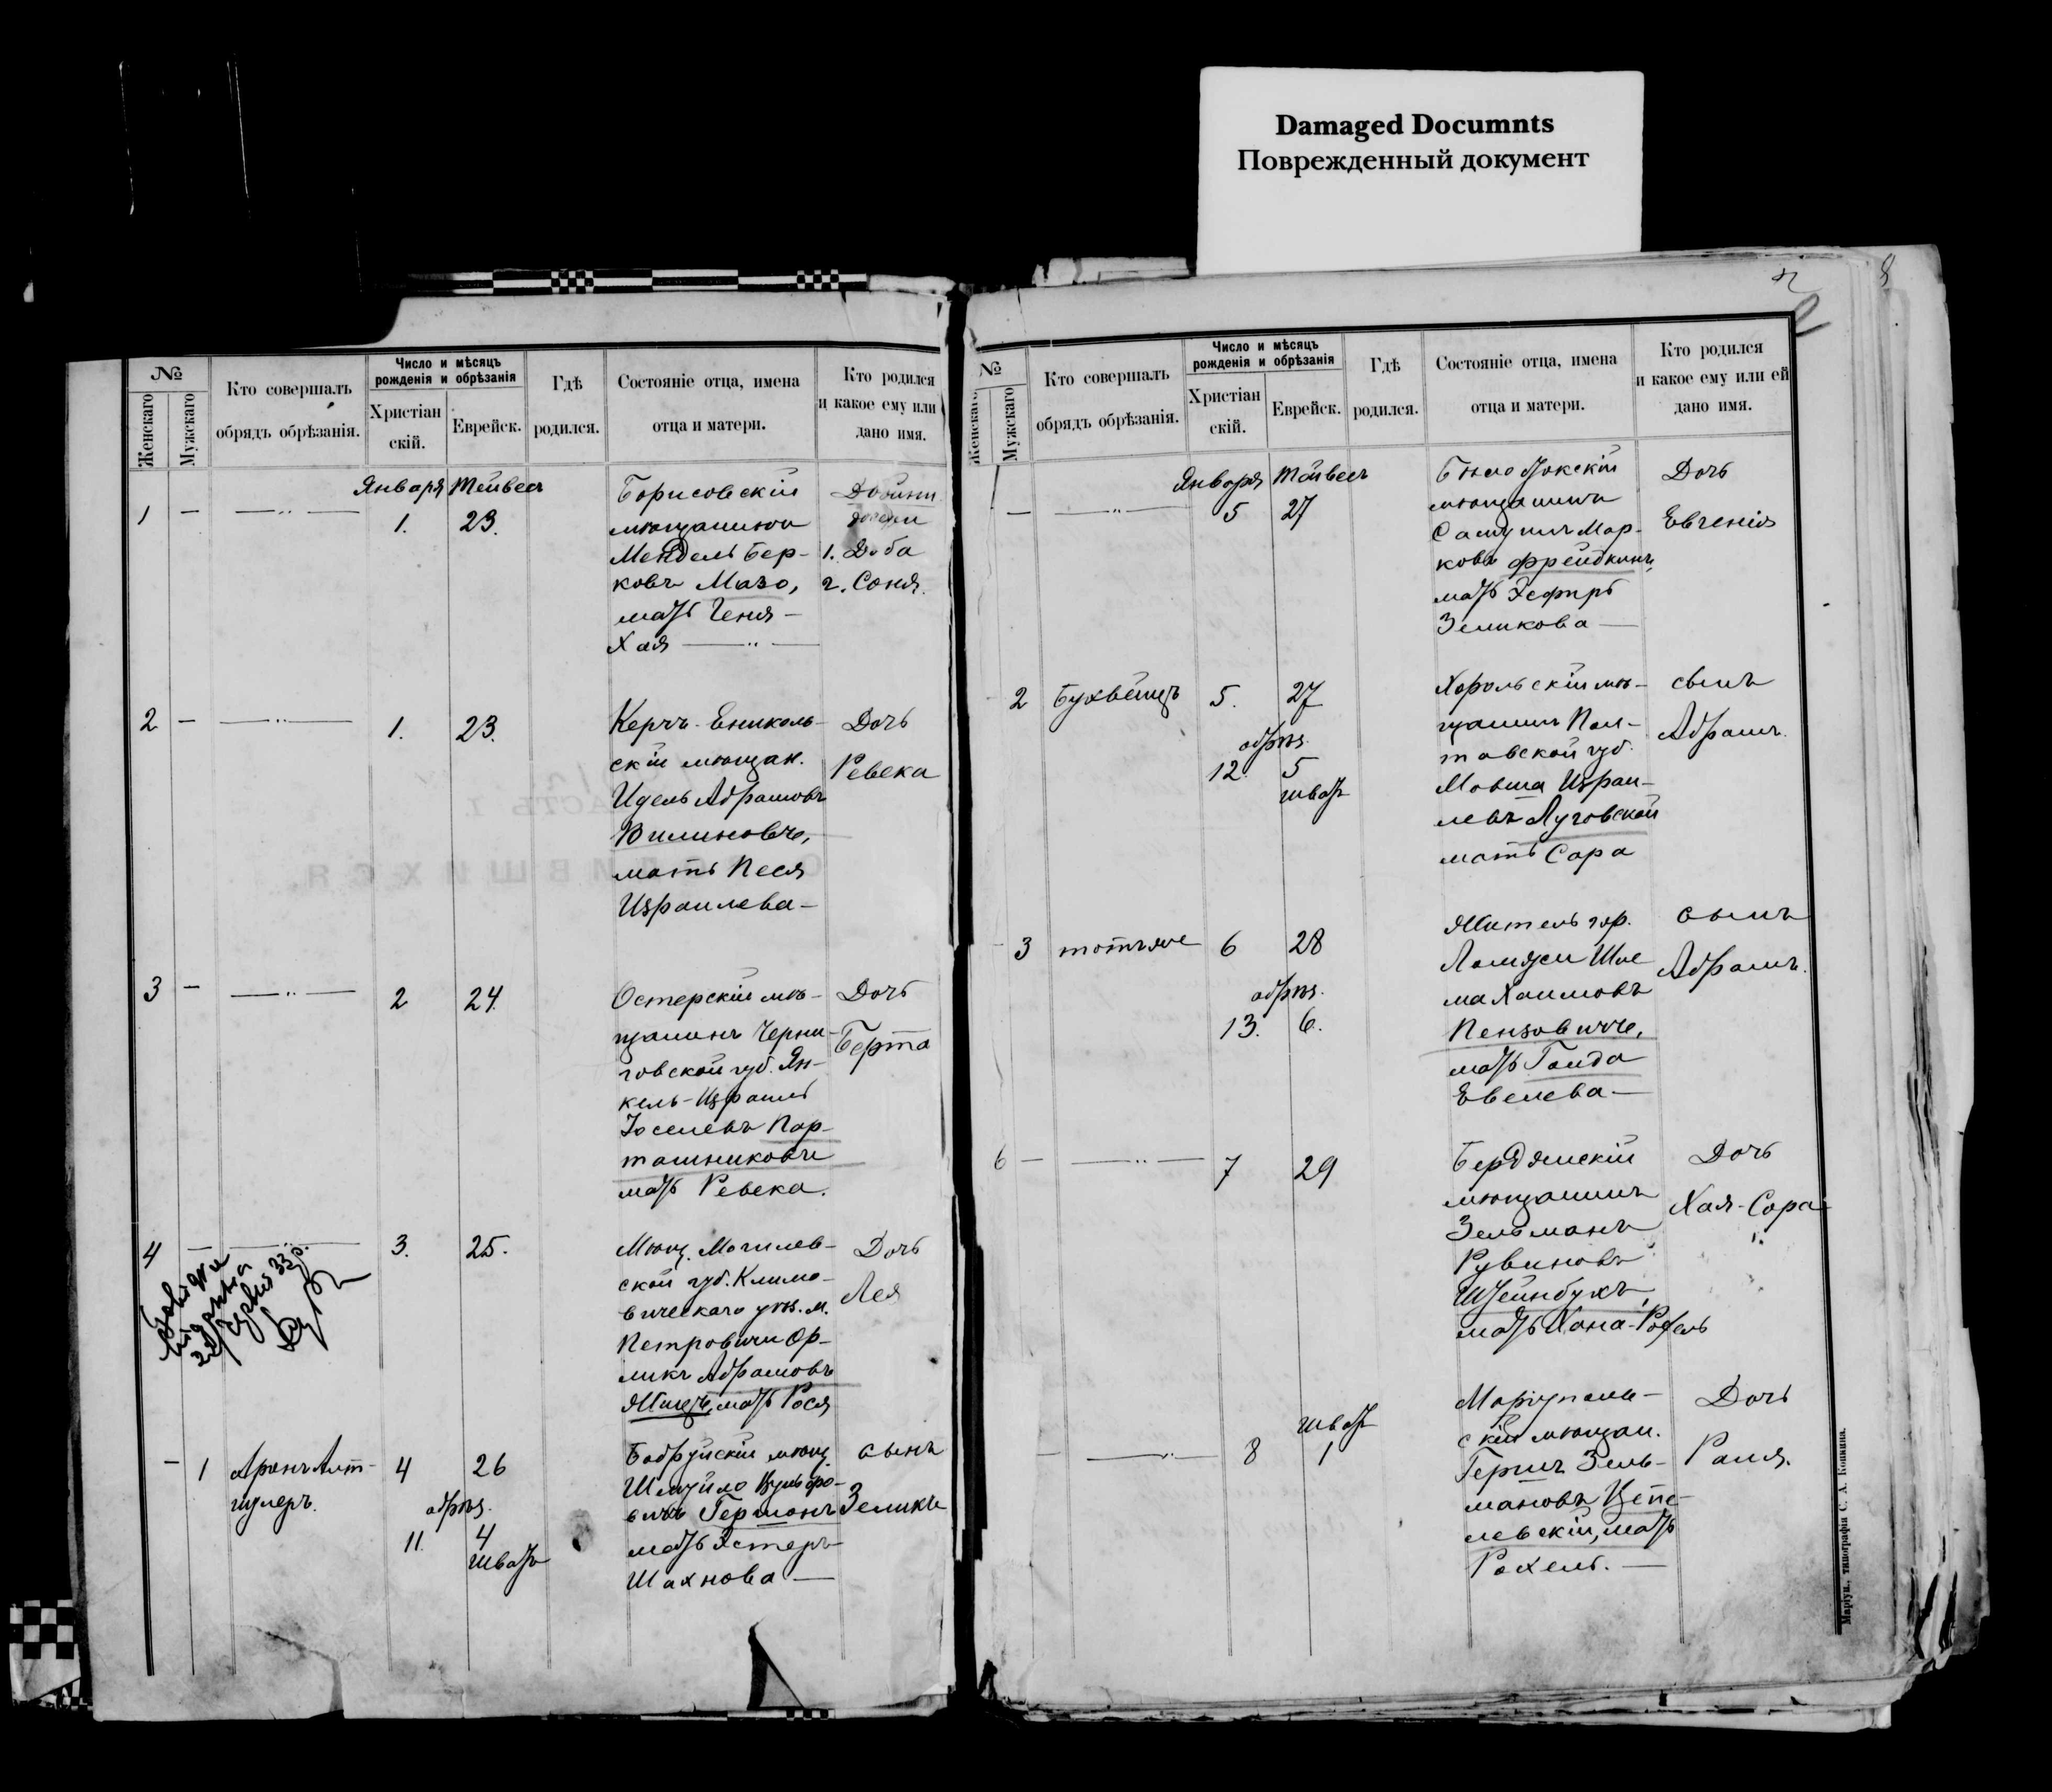 Damaged Documnts
Поврежденный документ
№
Женскаго
Мужскаго
Кто совершалъ
обрядъ обрѣзанія.
Число и мѣсяцъ
рожденія и обрѣзанія
Христіан
скій.
Еврейск.
Гдѣ
родился.
Состояніе отца, имена
отца и матери.
Кто родился
и какое ему или
дано имя.
Января Тейвесъ
1 — —„— 1. 23.
Борисовскій
мѣщанинъ
Мендель Бер-
ковъ Мазо,
мать Геня-
Хая —„—
Двойни
дочери
1. Доба
2. Соня.
2 — —„— 1. 23.
Керчь-Ениколь-
скій мѣщан.
Идель Абрамовъ
Вилиновъ,
мать Песя
Израилева—
Дочь
Ревека
3 — —„— 2 24.
Остерскій мѣ-
щанинъ Черни-
говской губ. Ян-
кель-Израиль
Іоселевъ Пор-
тошниковъ
мать Ревека.
Дочь
Берта
4 — —„— 3. 25.
Мѣщ. Могилев-
ской губ. Климо-
вическаго уѣз. м.
Петровичи Ор-
ликъ Абрамовъ
мать Рося
Дочь
Лея
— 1 Аронъ Альт-
шулеръ.
4 26
обрѣз.
11. 4
Шватъ
Бобруйскій мѣщ.
Шмуйло
Гермонъ
мать Эстеръ
Шахнова —
сынъ
Зеликъ
№
Женскаго
Мужскаго
Кто совершалъ
обрядъ обрѣзанія.
Число и мѣсяцъ
рожденія и обрѣзанія
Христіан
скій.
Еврейск.
Гдѣ
родился.
Состояніе отца, имена
отца и матери.
Кто родился
и какое ему или ей
дано имя.
Января Тейвесъ
— —„— 5 27
мѣщанинъ
Самуилъ Мар-
ковъ Фрейдкинъ,
мать Эсфирь
Зеликова —
Дочь
Евгенія
2 Бухвейцъ 5. 27
обрѣз.
12. 5
шватъ
Хорольскій мѣ-
щанинъ Пол-
тавской губ.
Мовша Израи-
левъ Луговской
мать Сора
сынъ
Абрамъ.
3 тотъ же 6 28
обрѣз.
13. 6.
Житель гор.
Ломжи Шле
ма Хаимовъ
Пензовичъ,
мать Голда
Евелева—
сынъ
Абрамъ.
6 — —„— 7 29
Бердянскій
мѣщанинъ
Зельманъ
Рувиновъ
Штейнбухъ,
мать Хана-Рохель
Дочь
Хая-Сора
— —„— 8
Шватъ
1
Маріуполь-
скій мѣщан.
Гершъ Зель-
мановъ Цепе-
левскій, мать
Рохель. —
Дочь
Раиля.
Маріуп., типографія С. А. Копкина.